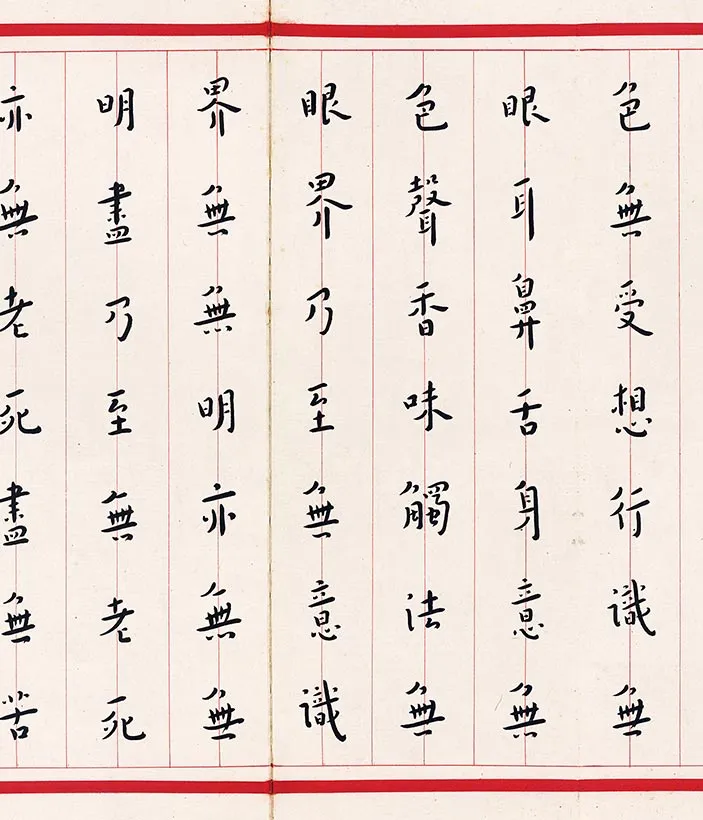 色無受想行識無
眼耳鼻舌身意無
色聲香味觸法無
眼界乃至無意識
界無無明亦無無
明盡乃至無老死
亦無老死盡無苦